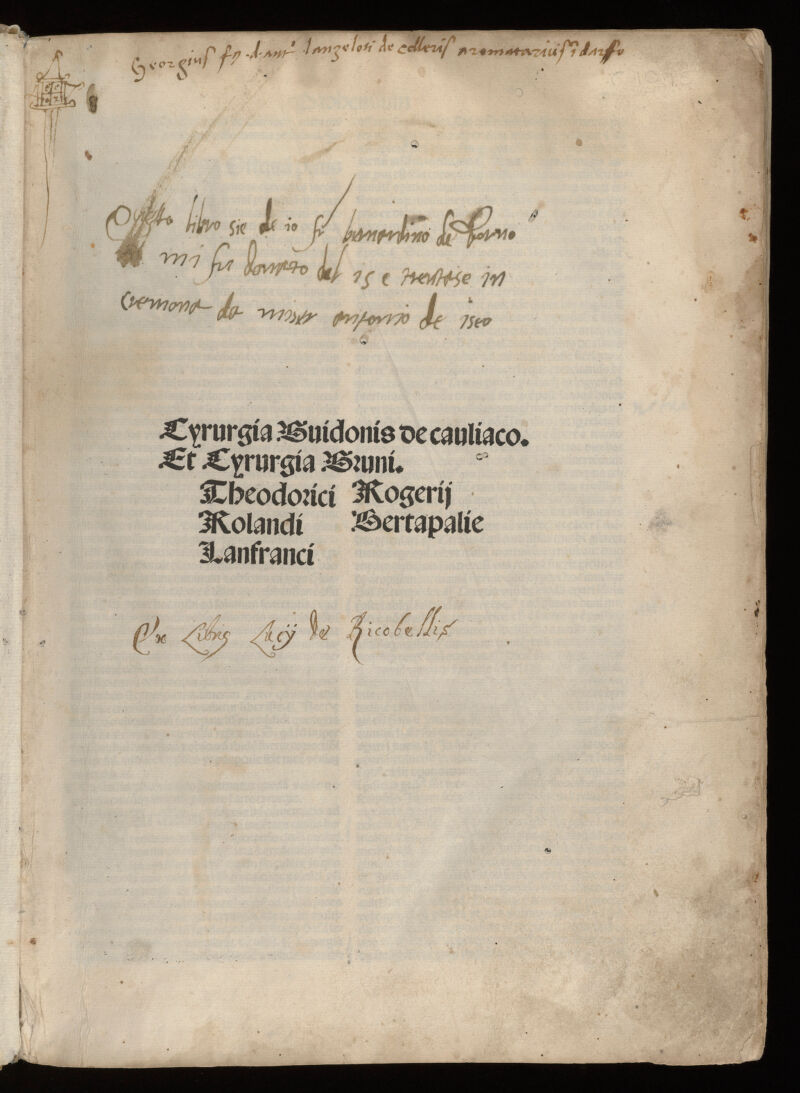 Georgius fq. d. antˢ lanzeloti de celleris aromatarius ĩ darffo
Questo libro sie de io frͣ bernardino de borno
mi fu donato del 15 e trentase in
cremona da miser antonio de iseo
Cyrurgia Guidonis de cauliaco.
Et Cyrurgia Bruni.
Theodorici Rogerij
Rolandi Bertapalie
Lanfranci
Ex Libris Lucij de Ricobellis